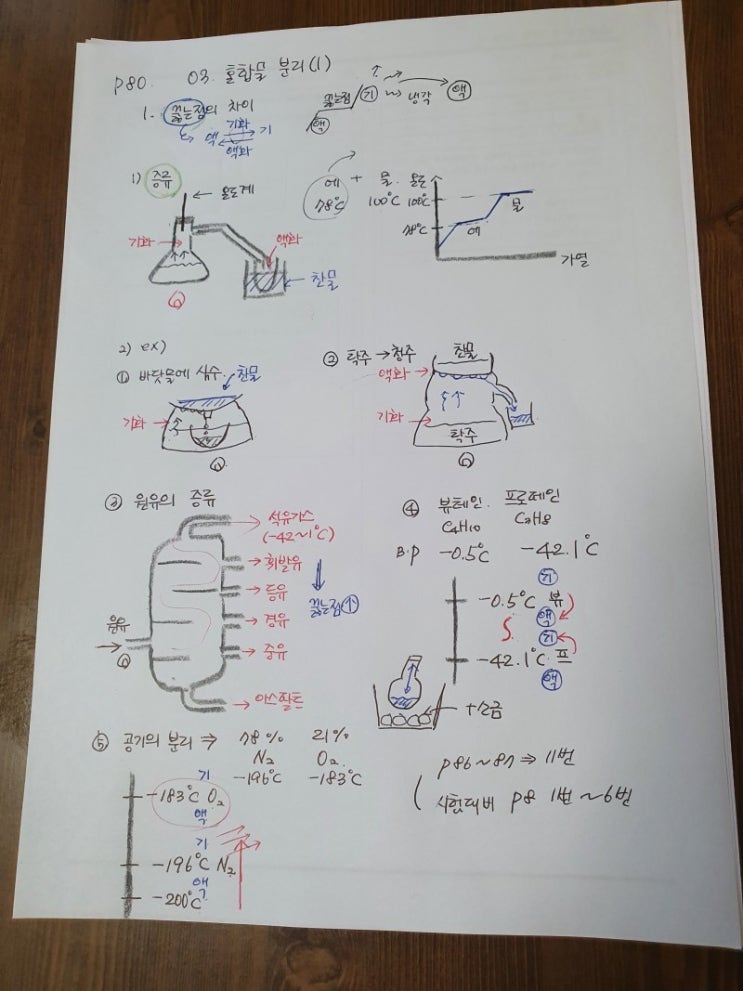 P80. 03. 혼합물 분리(1)
1. 끓는점의 차이
액 기화 기
액화
끓는점 기 냉각 액
액
1) 증류
온도계
기화
액화
찬물
에 + 물
78℃ 100℃
온도
100℃
78℃
에
물
가열
2) ex)
① 바닷물에 식수
찬물
기화
② 탁주 → 청주
찬물
액화
기화
탁주
③ 원유의 증류
석유가스
(-42~1℃)
휘발유
등유
경유
중유
아스팔트
원유
끓는점(↑)
④ 뷰테인 프로페인
C4H10 C3H8
B.P -0.5℃ -42.1℃
기
-0.5℃ 뷰
액
기
-42.1℃ 프
액
+소금
⑤ 공기의 분리 ⇒ 78% 21%
N2 O2
-196℃ -183℃
기
-183℃ O2
액
기
-196℃ N2
액
-200℃
P86~87 ⇒ 11번
시험대비 P8 1번 ~6번